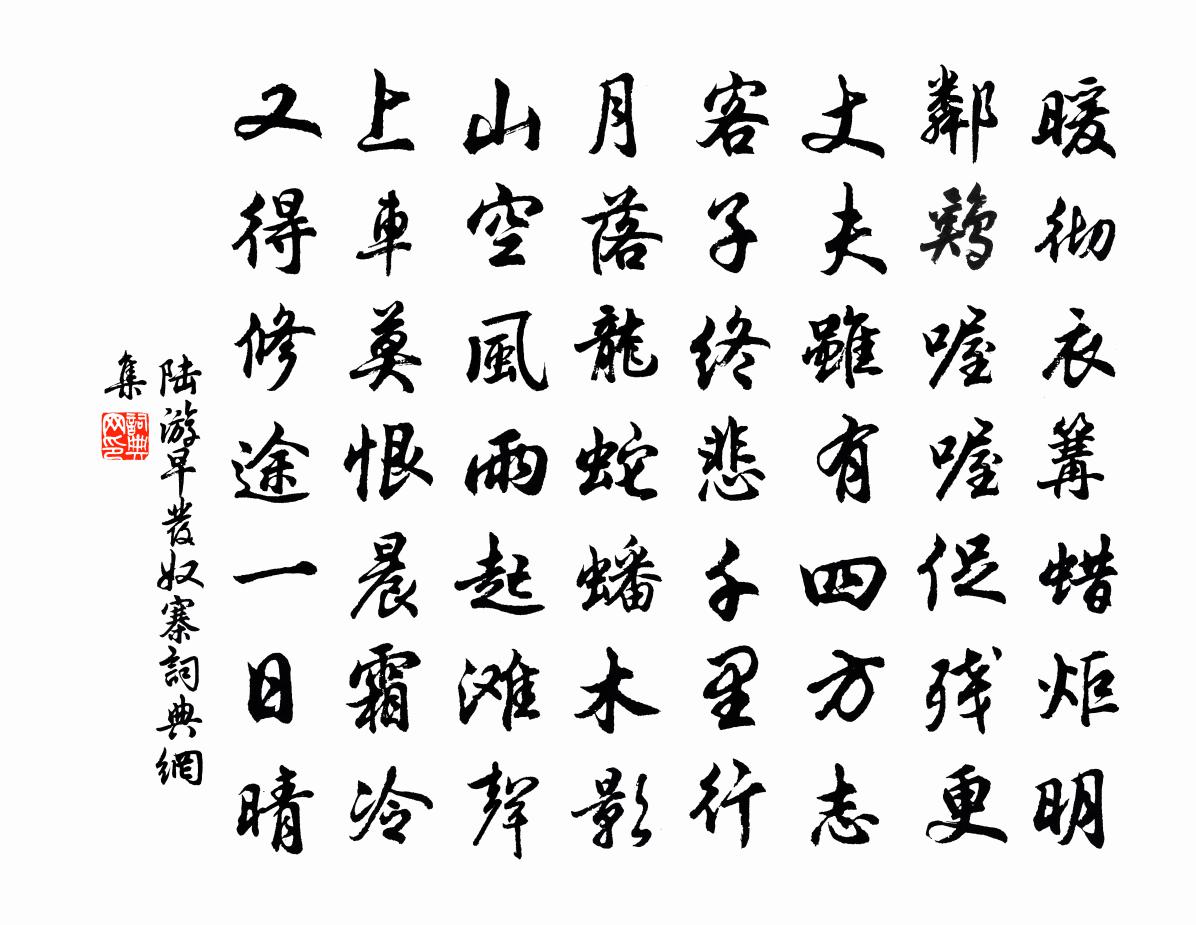 暖彻衣篝蜡炬明
鄰鷄喔喔促残更
丈夫雖有四方志
客子终悲千里行
月落龍蛇蟠木影
山空風雨起滩聲
上車莫恨晨霜冷
又得修途一日晴
陆游早發奴寨詞典網
集
詞典
网印